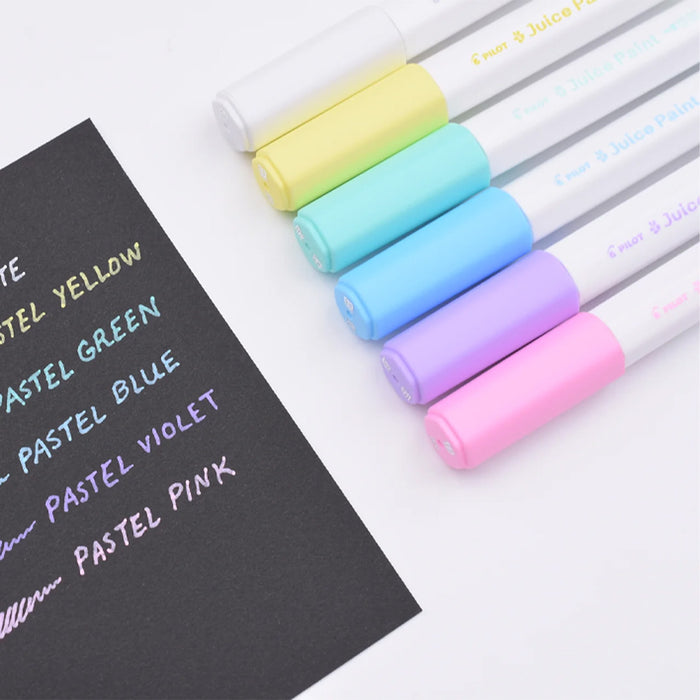 PILOT Juice Paint
Juice Paint
Juice Paint
PILOT Juice
TE
STEL YELLOW
PASTEL GREEN
PASTEL BLUE
PASTEL VIOLET
PASTEL PINK